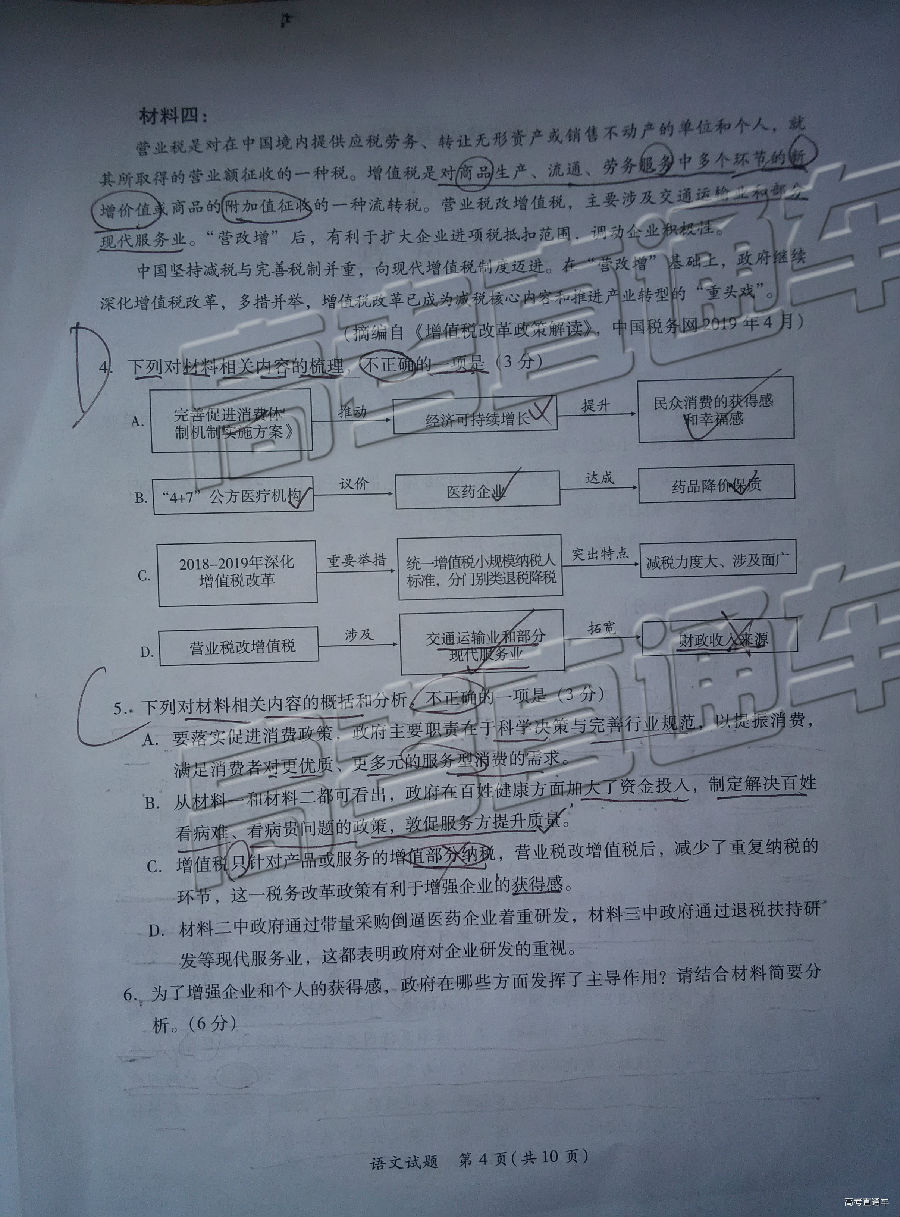 材料四：
营业税是对在中国境内提供应税劳务、转让无形资产或销售不动产的单位和个人，就
其所取得的营业额征收的一种税。增值税是对商品生产、流通、劳务服务中多个环节的新
增价值或商品的附加值征收的一种流转税。营业税改增值税，主要涉及交通运输业和部分
现代服务业。“营改增”后，有利于扩大企业进项税抵扣范围，调动企业积极性。
中国坚持减税与完善税制并重，向现代增值税制度迈进。在“营改增”基础上，政府继续
深化增值税改革，多措并举，增值税改革已成为减税核心内容和推进产业转型的“重头戏”。
（摘编自《增值税改革政策解读》，中国税务网2019年4月）
D
4. 下列对材料相关内容的梳理，不正确的一项是（3分）
A. 完善促进消费体 推动 经济可持续增长 提升 民众消费的获得感
制机制实施方案》 和幸福感
B. “4+7”公方医疗机构 议价 医药企业 达成 药品降价保质
C. 2018-2019年深化 重要举措 统一增值税小规模纳税人 突出特点 减税力度大、涉及面广
增值税改革 标准，分门别类退税降税
D. 营业税改增值税 涉及 交通运输业和部分 拓宽 财政收入来源
现代服务业
C
5. 下列对材料相关内容的概括和分析，不正确的一项是（3分）
A. 要落实促进消费政策，政府主要职责在于科学决策与完善行业规范，以提振消费，
满足消费者对更优质、更多元的服务型消费的需求。
B. 从材料一和材料二都可看出，政府在百姓健康方面加大了资金投入，制定解决百姓
看病难、看病贵问题的政策，敦促服务方提升质量。
C. 增值税只针对产品或服务的增值部分纳税，营业税改增值税后，减少了重复纳税的
环节，这一税务改革政策有利于增强企业的获得感。
D. 材料二中政府通过带量采购倒逼医药企业着重研发，材料三中政府通过退税扶持研
发等现代服务业，这都表明政府对企业研发的重视。
6. 为了增强企业和个人的获得感，政府在哪些方面发挥了主导作用？请结合材料简要分
析。（6分）
语文试题 第4页（共10页）
高考直通车
高考直通车
高考直通车